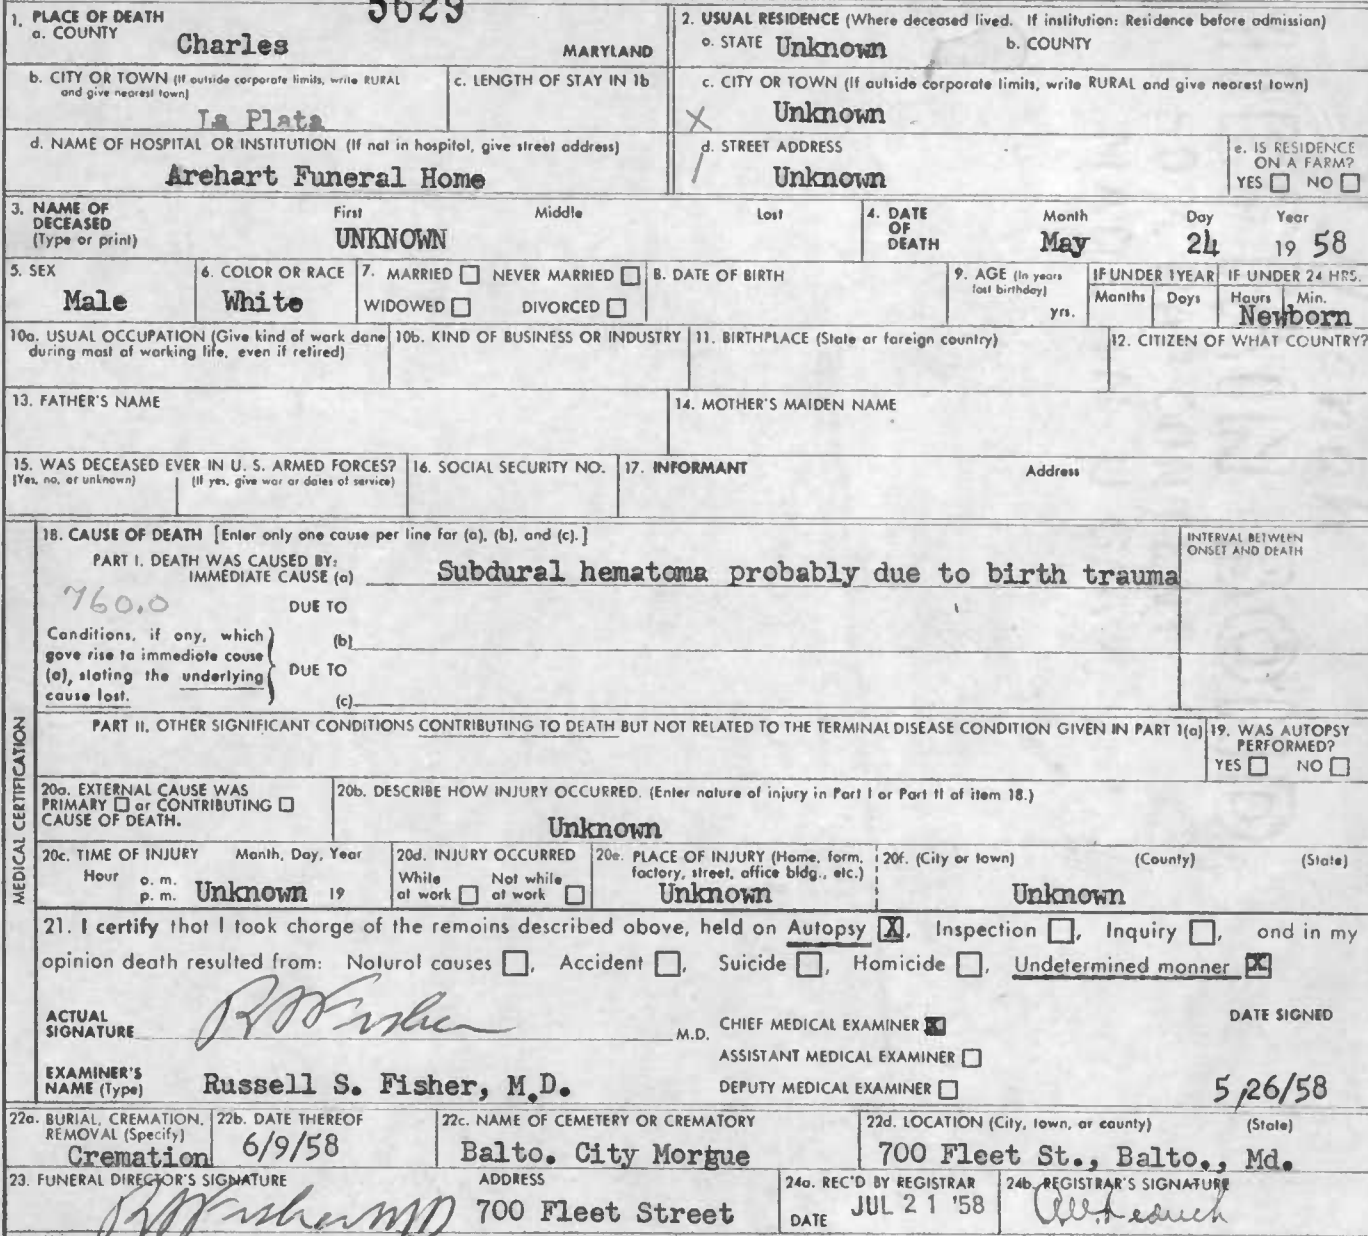 5629
1. PLACE OF DEATH
a. COUNTY
Charles
MARYLAND
2. USUAL RESIDENCE (Where deceased lived. If institution: Residence before admission)
a. STATE Unknown
b. COUNTY
b. CITY OR TOWN (If outside corporate limits, write RURAL and give nearest town)
La Plata
c. LENGTH OF STAY IN 1b
c. CITY OR TOWN (If outside corporate limits, write RURAL and give nearest town)
X Unknown
d. NAME OF HOSPITAL OR INSTITUTION (If not in hospital, give street address)
Arehart Funeral Home
d. STREET ADDRESS
Unknown
e. IS RESIDENCE ON A FARM?
YES NO
3. NAME OF DECEASED (Type or print)
First Middle Last
UNKNOWN
4. DATE OF DEATH
Month Day Year
May 24 19 58
5. SEX
Male
6. COLOR OR RACE
White
7. MARRIED NEVER MARRIED
WIDOWED DIVORCED
8. DATE OF BIRTH
9. AGE (In years last birthday)
yrs.
IF UNDER 1 YEAR
Months Days
IF UNDER 24 HRS.
Hours Min.
Newborn
10a. USUAL OCCUPATION (Give kind of work done during most of working life, even if retired)
10b. KIND OF BUSINESS OR INDUSTRY
11. BIRTHPLACE (State or foreign country)
12. CITIZEN OF WHAT COUNTRY?
13. FATHER'S NAME
14. MOTHER'S MAIDEN NAME
15. WAS DECEASED EVER IN U. S. ARMED FORCES?
(Yes, no, or unknown) (If yes, give war or dates of service)
16. SOCIAL SECURITY NO.
17. INFORMANT
Address
MEDICAL CERTIFICATION
18. CAUSE OF DEATH [Enter only one cause per line for (a), (b), and (c).]
INTERVAL BETWEEN ONSET AND DEATH
PART I. DEATH WAS CAUSED BY:
IMMEDIATE CAUSE (a) Subdural hematoma probably due to birth trauma
760.0
DUE TO
Conditions, if any, which gave rise to immediate cause (a), stating the underlying cause last.
(b)
DUE TO
(c)
PART II. OTHER SIGNIFICANT CONDITIONS CONTRIBUTING TO DEATH BUT NOT RELATED TO THE TERMINAL DISEASE CONDITION GIVEN IN PART 1(a)
19. WAS AUTOPSY PERFORMED?
YES NO
20a. EXTERNAL CAUSE WAS PRIMARY or CONTRIBUTING CAUSE OF DEATH.
20b. DESCRIBE HOW INJURY OCCURRED. (Enter nature of injury in Part I or Part II of item 18.)
Unknown
20c. TIME OF INJURY Month, Day, Year
Hour a. m.
p. m. Unknown 19
20d. INJURY OCCURRED
While at work Not while at work
20e. PLACE OF INJURY (Home, farm, factory, street, office bldg., etc.)
Unknown
20f. (City or town) (County) (State)
Unknown
21. I certify that I took charge of the remains described above, held on Autopsy X, Inspection, Inquiry, and in my
opinion death resulted from: Natural causes, Accident, Suicide, Homicide, Undetermined manner X
ACTUAL SIGNATURE
M.D.
CHIEF MEDICAL EXAMINER X
DATE SIGNED
ASSISTANT MEDICAL EXAMINER
EXAMINER'S NAME (Type) Russell S. Fisher, M.D.
DEPUTY MEDICAL EXAMINER
5/26/58
22a. BURIAL, CREMATION, REMOVAL (Specify)
Cremation
22b. DATE THEREOF
6/9/58
22c. NAME OF CEMETERY OR CREMATORY
Balto. City Morgue
22d. LOCATION (City, town, or county) (State)
700 Fleet St., Balto., Md.
23. FUNERAL DIRECTOR'S SIGNATURE
ADDRESS
700 Fleet Street
24a. REC'D BY REGISTRAR
DATE JUL 21 '58
24b. REGISTRAR'S SIGNATURE